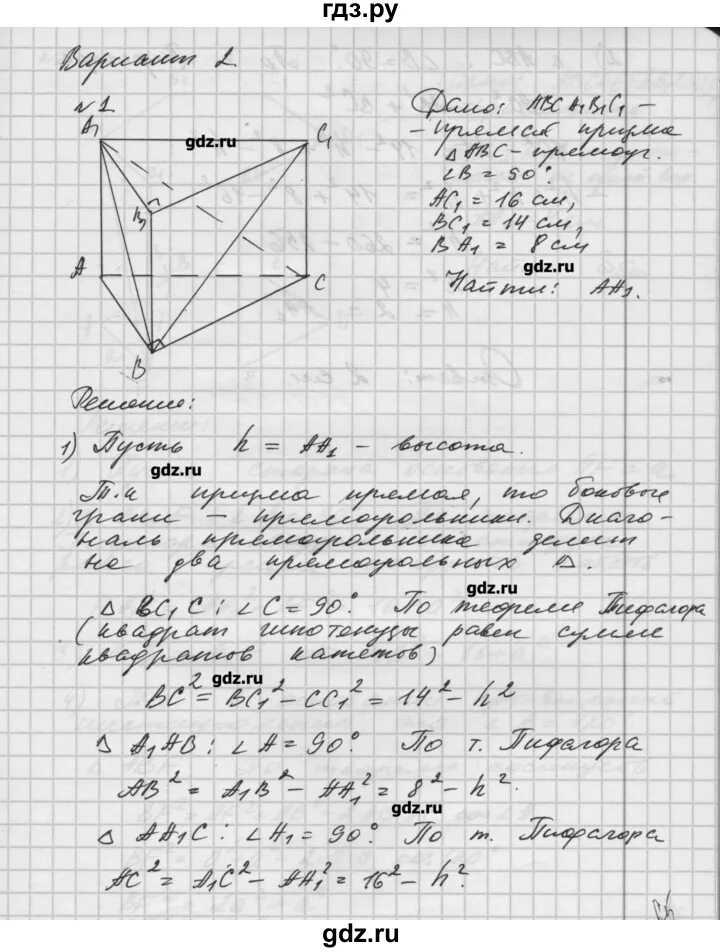 гдз.ру
Вариант 2
№1
A1
C1
B1
A
C
B
gdz.ru
Дано: ABCA1B1C1 –
– прямая призма
△ABC – прямоуг.
∠B = 90°.
AC1 = 16 см,
BC1 = 14 см,
BA1 = 8 см
gdz.ru
Найти: AA1.
Решение:
1) Пусть h = AA1 – высота.
gdz.ru
Т.к призма прямая, то боковые
грани – прямоугольники. Диаго-
наль прямоугольника делит
на два прямоугольных △.
gdz.ru
△ BC1C: ∠C = 90°. По теореме Пифагора
(квадрат гипотенузы равен сумме
квадратов катетов)
gdz.ru
BC² = BC1² – CC1² = 14² – h²
△ A1AB: ∠A = 90°. По т. Пифагора
AB² = A1B² – AA1² = 8² – h².
gdz.ru
△ AA1C: ∠A1 = 90°. По т. Пифагора
AC² = A1C² – AA1² = 16² – h².
gdz.ru